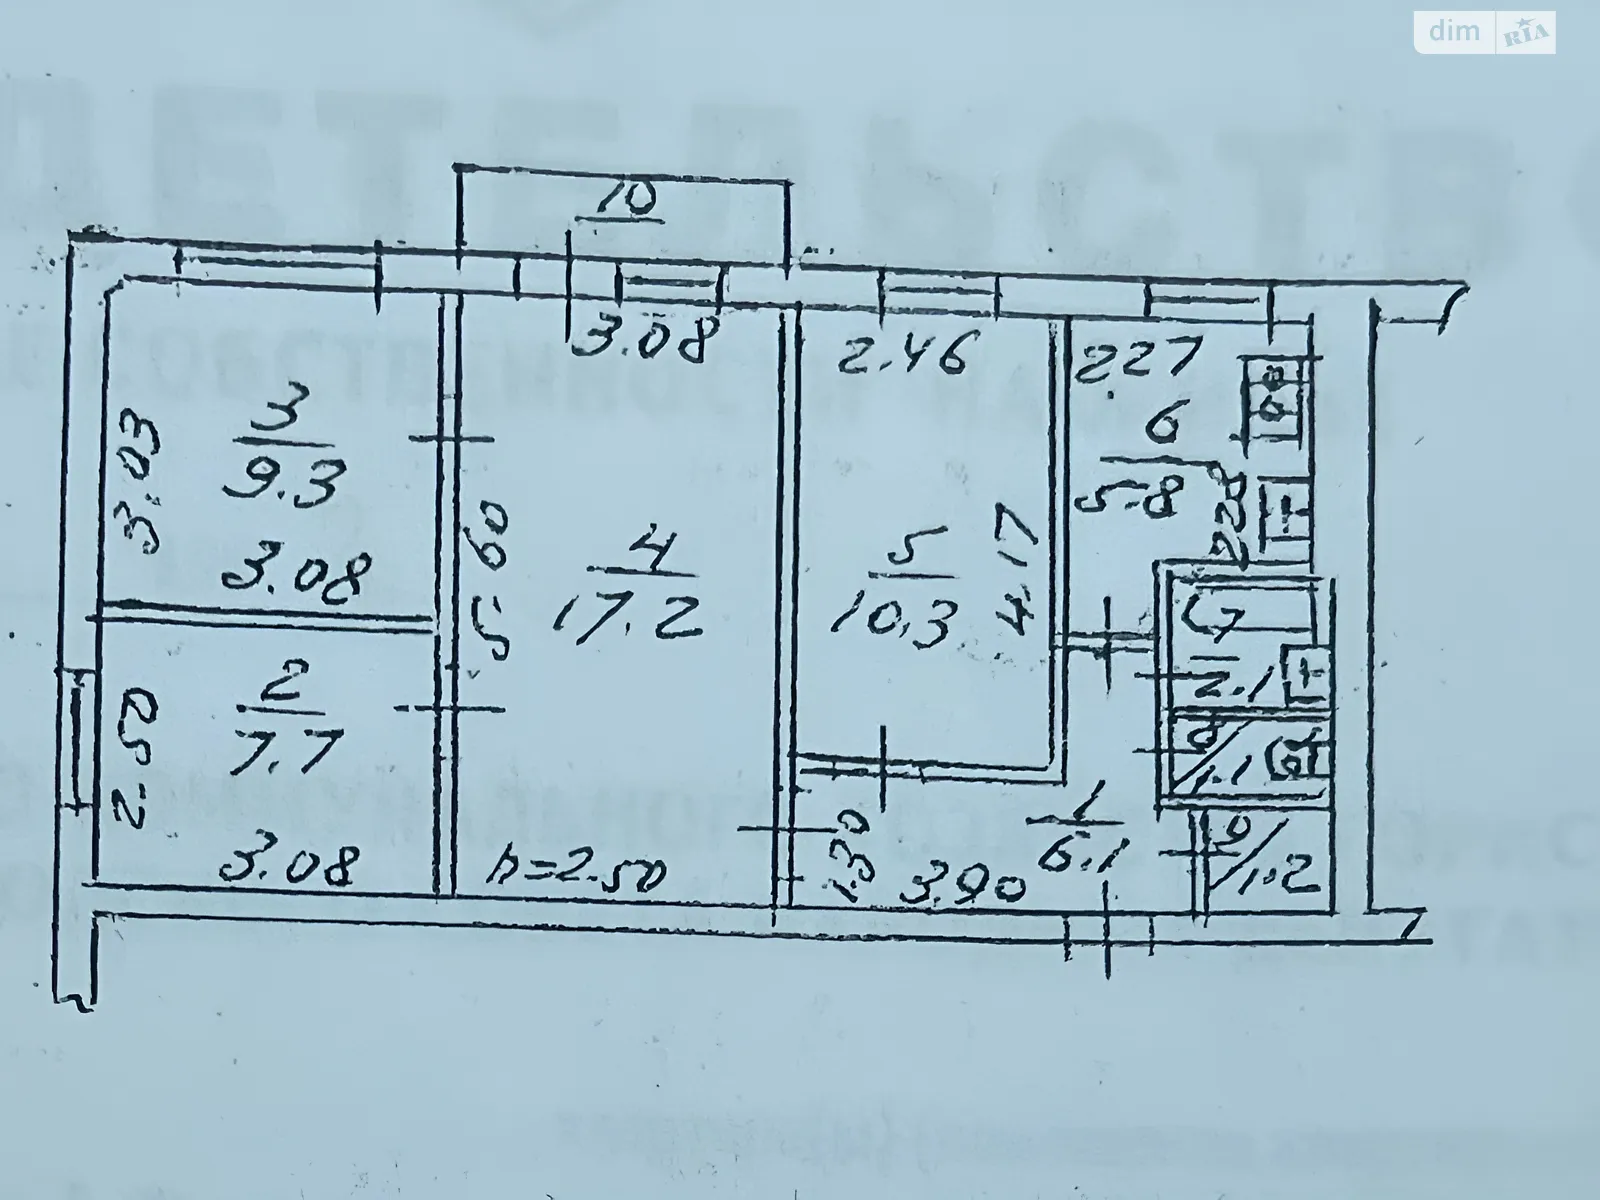 dim RIA
10
3.08
2.46
2.27
3
9.3
3.03
3.08
5.60
4
17.2
5
10.3
4.17
6
5.8
2.28
7
2.1
2
7.7
2.50
3.08
h=2.50
1.30
3.90
1
6.1
8
1.1
1.2